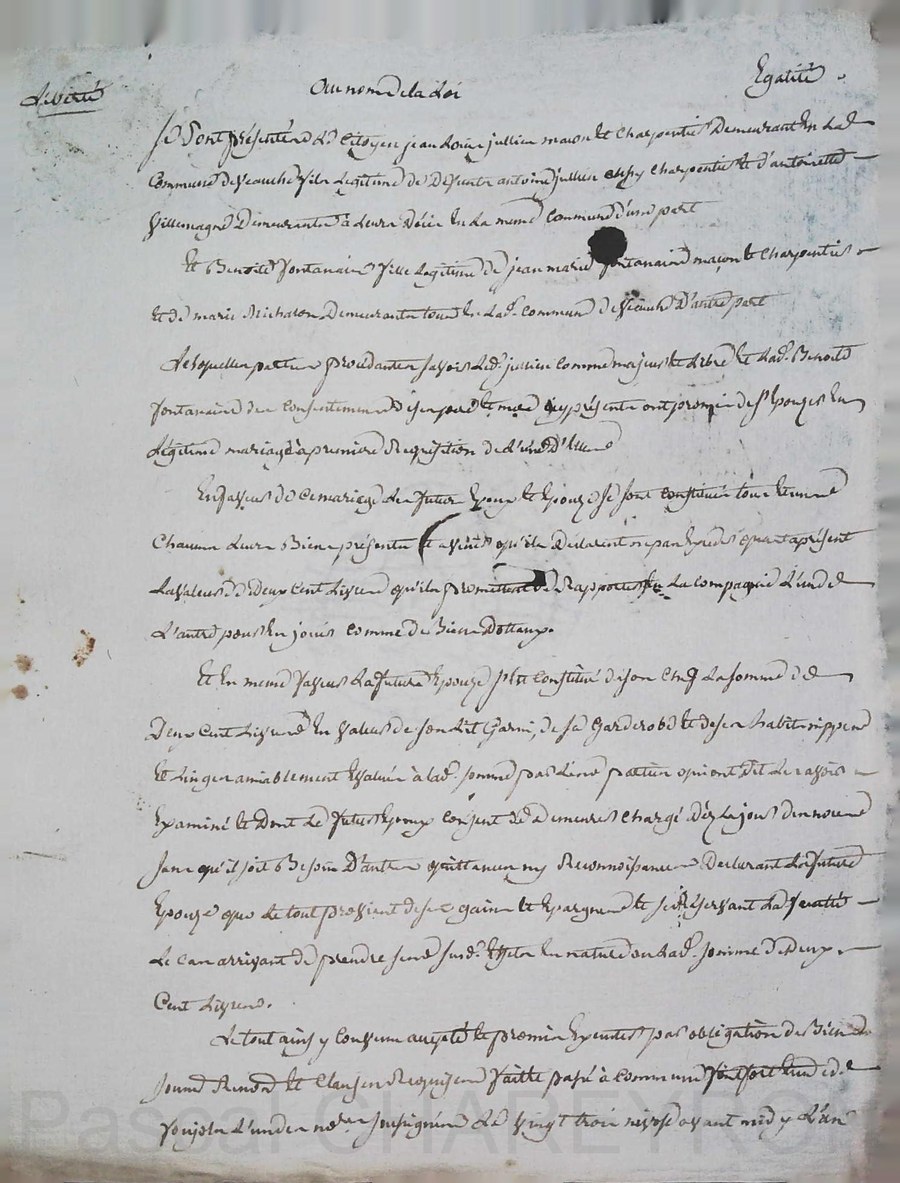 Liberté Au nom de la Loi Egalité
Se Sont présentés Le Citoyen jean Louis jullien maçon et Charpentier Demeurant En Lad.
Commune de Veauche fils Legitime de Defunt antoine jullien Charpentier et d'antoinette
Villemagne Demeurante à Leurs Déces En La meme Commune d'une part
Et Benoite fontanaire fille Legitime de jean marie fontanaire maçon et Charpentier
Et de marie Michalon Demeurants tous En Lad. Commune de Veauche D'autre part
Lesquelles parties procédantes savoir Led. jullien Comme majeur et Libre et Lad. Benoite
fontanaire du Consentement de ses pere et mere cy présents ont promis de S'Epouzer En
Légitime mariage à premiere Requisition de L'une D'Elles
En faveur de Ce mariage Les futur Epoux et Epouze se sont Constitués tous et un
Chacuns Leurs Biens présents et avenirs qu'ils Declarent ne pas Exceder quant à présent
La valeur de Deux Cent Livres qu'ils promettent de Rapporter En La Compagnie L'un de
L'autre pour En jouir Comme de Biens Dotaux.
Et En meme faveur La future Epouze S'Est Constitué de son Chef La somme de
Deux Cent Livres En valeur de son Lit Garni, de sa Garderobe et de ses habits nippes
Et Linges amiablement Evalués à lad. somme par Lesd. parties qui ont Dit Le savoir
Examiné et Dont Le futur Epoux Consent de Demeurer Chargé Dèz Le jour Des noces
Sans qu'il soit Besoin D'autres quittances ny Reconnoissances Declarant La future
Epouze que Le tout provient de ses gains et Epargnes et se Reservant La faculté
Le Cas arrivant de prendre sesd. susd. Effets En nature ou Lad. somme de Deux
Cent Livres.
Le tout ainsy Convenu accepté et promis Executer par obligation de Biens
soumis Renonc. et Clauses Requises faitte passé à Commune fontfort
L'un des no.res soussignés Le vingt trois nivose avant midy L'an